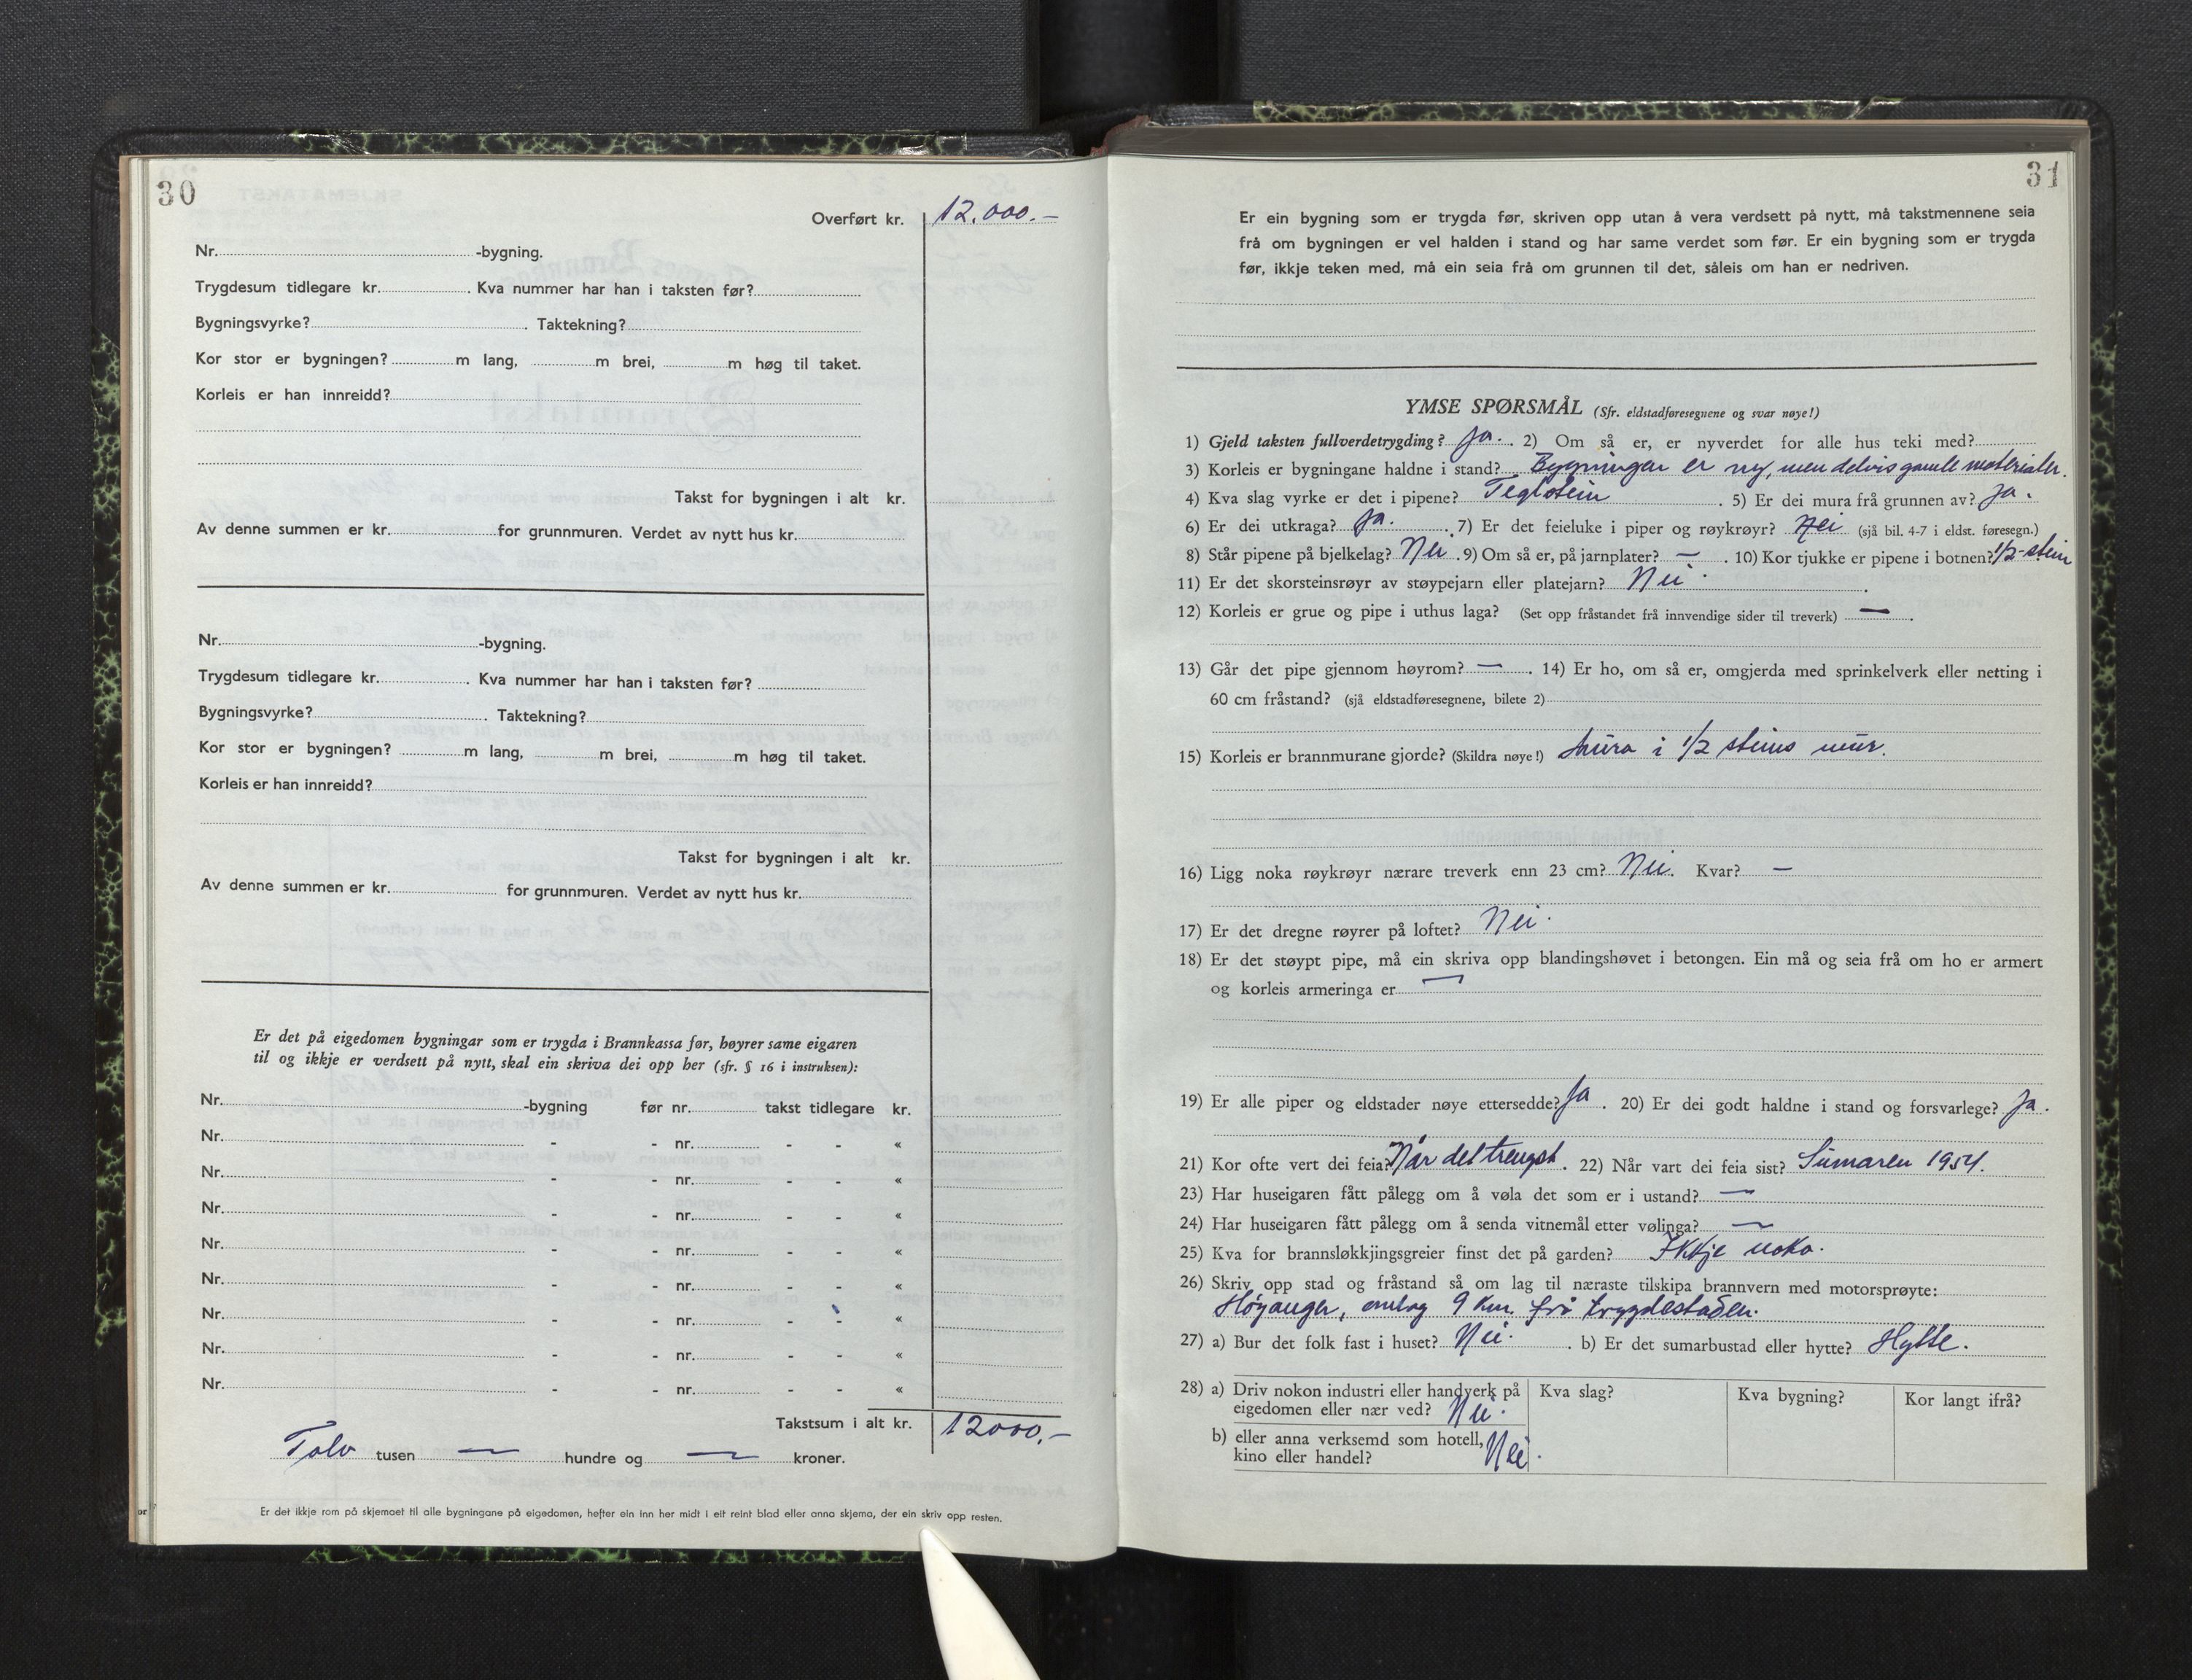 30
Overført kr. 12.000.-
Nr. -bygning.
Trygdesum tidlegare kr. . Kva nummer har han i taksten før?
Bygningsvyrke? . Taktekning?
Kor stor er bygningen? m lang, m brei, m høg til taket.
Korleis er han innreidd?
Takst for bygningen i alt kr.
Av denne summen er kr. for grunnmuren. Verdet av nytt hus kr.
Nr. -bygning.
Trygdesum tidlegare kr. . Kva nummer har han i taksten før?
Bygningsvyrke? . Taktekning?
Kor stor er bygningen? m lang, m brei, m høg til taket.
Korleis er han innreidd?
Takst for bygningen i alt kr.
Av denne summen er kr. for grunnmuren. Verdet av nytt hus kr.
Er det på eigedomen bygningar som er trygda i Brannkassa før, høyrer same eigaren
til og ikkje er verdsett på nytt, skal ein skriva dei opp her (sfr. § 16 i instruksen):
Nr. -bygning før nr. takst tidlegare kr.
Nr. - - nr. - - «
Nr. - - nr. - - «
Nr. - - nr. - - «
Nr. - - nr. - - «
Nr. - - nr. - - «
Nr. - - nr. - - «
Nr. - - nr. - - «
Nr. - - nr. - - «
Takstsum i alt kr. 12000,-
Tolv tusen — hundre og — kroner.
Er det ikkje rom på skjemaet til alle bygningane på eigedomen, hefter ein inn her midt i eit reint blad eller anna skjema, der ein skriv opp resten.
31
Er ein bygning som er trygda før, skriven opp utan å vera verdsett på nytt, må takstmennene seia
frå om bygningen er vel halden i stand og har same verdet som før. Er ein bygning som er trygda
før, ikkje teken med, må ein seia frå om grunnen til det, såleis om han er nedriven.
YMSE SPØRSMÅL (Sfr. eldstadføresegnene og svar nøye!)
1) Gjeld taksten fullverdetrygding? Ja. . 2) Om så er, er nyverdet for alle hus teki med?
3) Korleis er bygningane haldne i stand? Bygningen er ny, men delvis gamle materialer.
4) Kva slag vyrke er det i pipene? Teglstein . 5) Er dei mura frå grunnen av? Ja.
6) Er dei utkraga? Ja. . 7) Er det feieluke i piper og røykrøyr? Nei (sjå bil. 4-7 i eldst. føresegn.)
8) Står pipene på bjelkelag? Nei . 9) Om så er, på jarnplater? — . 10) Kor tjukke er pipene i botnen? 1/2-stein
11) Er det skorsteinsrøyr av støypejarn eller platejarn? Nei. .
12) Korleis er grue og pipe i uthus laga? (Set opp fråstandet frå innvendige sider til treverk) — .
13) Går det pipe gjennom høyrom? — . 14) Er ho, om så er, omgjerda med sprinkelverk eller netting i
60 cm fråstand? (sjå eldstadføresegnene, bilete 2)
15) Korleis er brannmurane gjorde? (Skildra nøye!) Mura i 1/2 steins mur.
16) Ligg noka røykrøyr nærare treverk enn 23 cm? Nei. Kvar? —
17) Er det dregne røyrer på loftet? Nei.
18) Er det støypt pipe, må ein skriva opp blandingshøvet i betongen. Ein må og seia frå om ho er armert
og korleis armeringa er —
19) Er alle piper og eldstader nøye ettersedde? Ja . 20) Er dei godt haldne i stand og forsvarlege? Ja.
21) Kor ofte vert dei feia? Når det trengst . 22) Når vart dei feia sist? Sumaren 1954.
23) Har huseigaren fått pålegg om å vøla det som er i ustand? —
24) Har huseigaren fått pålegg om å senda vitnemål etter vølinga? —
25) Kva for brannsløkkjingsgreier finst det på garden? Ikkje noko.
26) Skriv opp stad og fråstand så om lag til næraste tilskipa brannvern med motorsprøyte:
Høyanger, omlag 9 km. frå trygdestaden.
27) a) Bur det folk fast i huset? Nei. . b) Er det sumarbustad eller hytte? Hytte.
28) a) Driv nokon industri eller handverk på Kva slag? Kva bygning? Kor langt ifrå?
eigedomen eller nær ved? Nei.
b) eller anna verksemd som hotell, Nei.
kino eller handel?